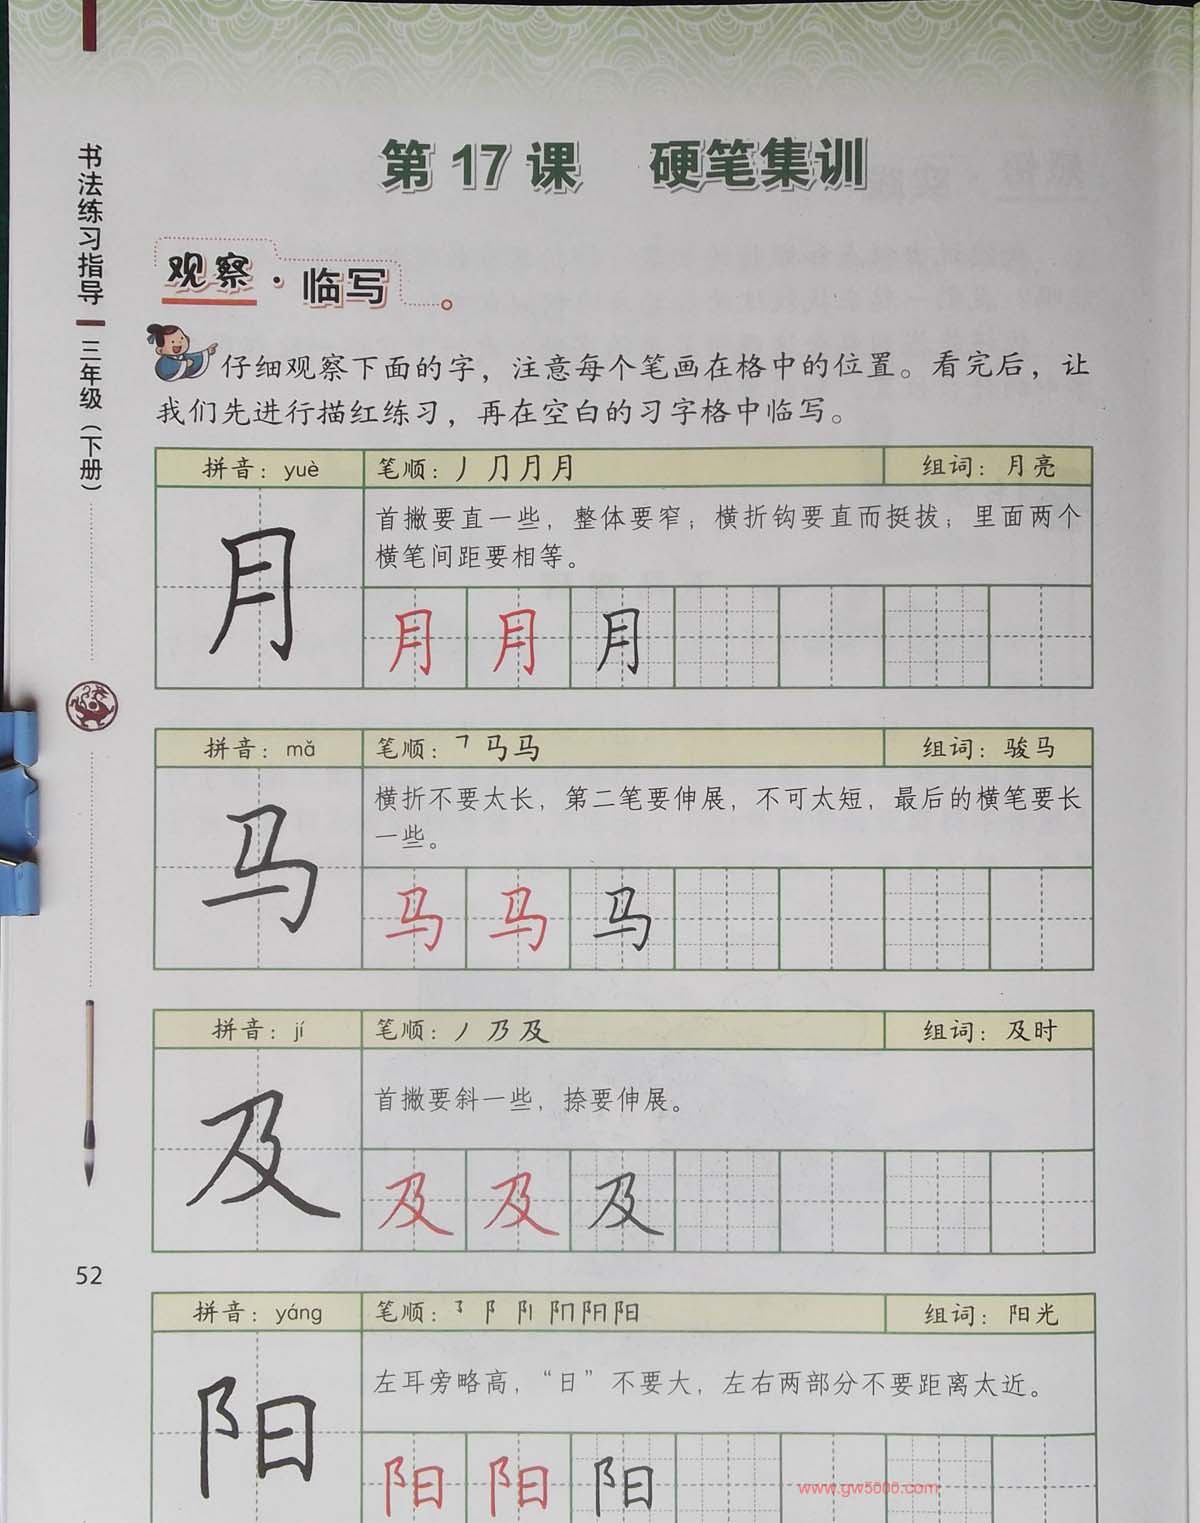 第 17 课 硬笔集训
书法练习指导 三年级（下册）
观察·临写
仔细观察下面的字，注意每个笔画在格中的位置。看完后，让
我们先进行描红练习，再在空白的习字格中临写。
拼音：yuè 笔顺：丿 ⺆ 月 月 组词：月亮
首撇要直一些，整体要窄；横折钩要直而挺拔；里面两个
横笔间距要相等。
月 月 月 月
拼音：mǎ 笔顺：㇕ 马 马 组词：骏马
横折不要太长，第二笔要伸展，不可太短，最后的横笔要长
一些。
马 马 马 马
拼音：jí 笔顺：丿 乃 及 组词：及时
首撇要斜一些，捺要伸展。
及 及 及 及
52
拼音：yáng 笔顺：阝 阳 组词：阳光
左耳旁略高，“日”不要大，左右两部分不要距离太近。
阳 阳 阳 阳
www.gw5000.com